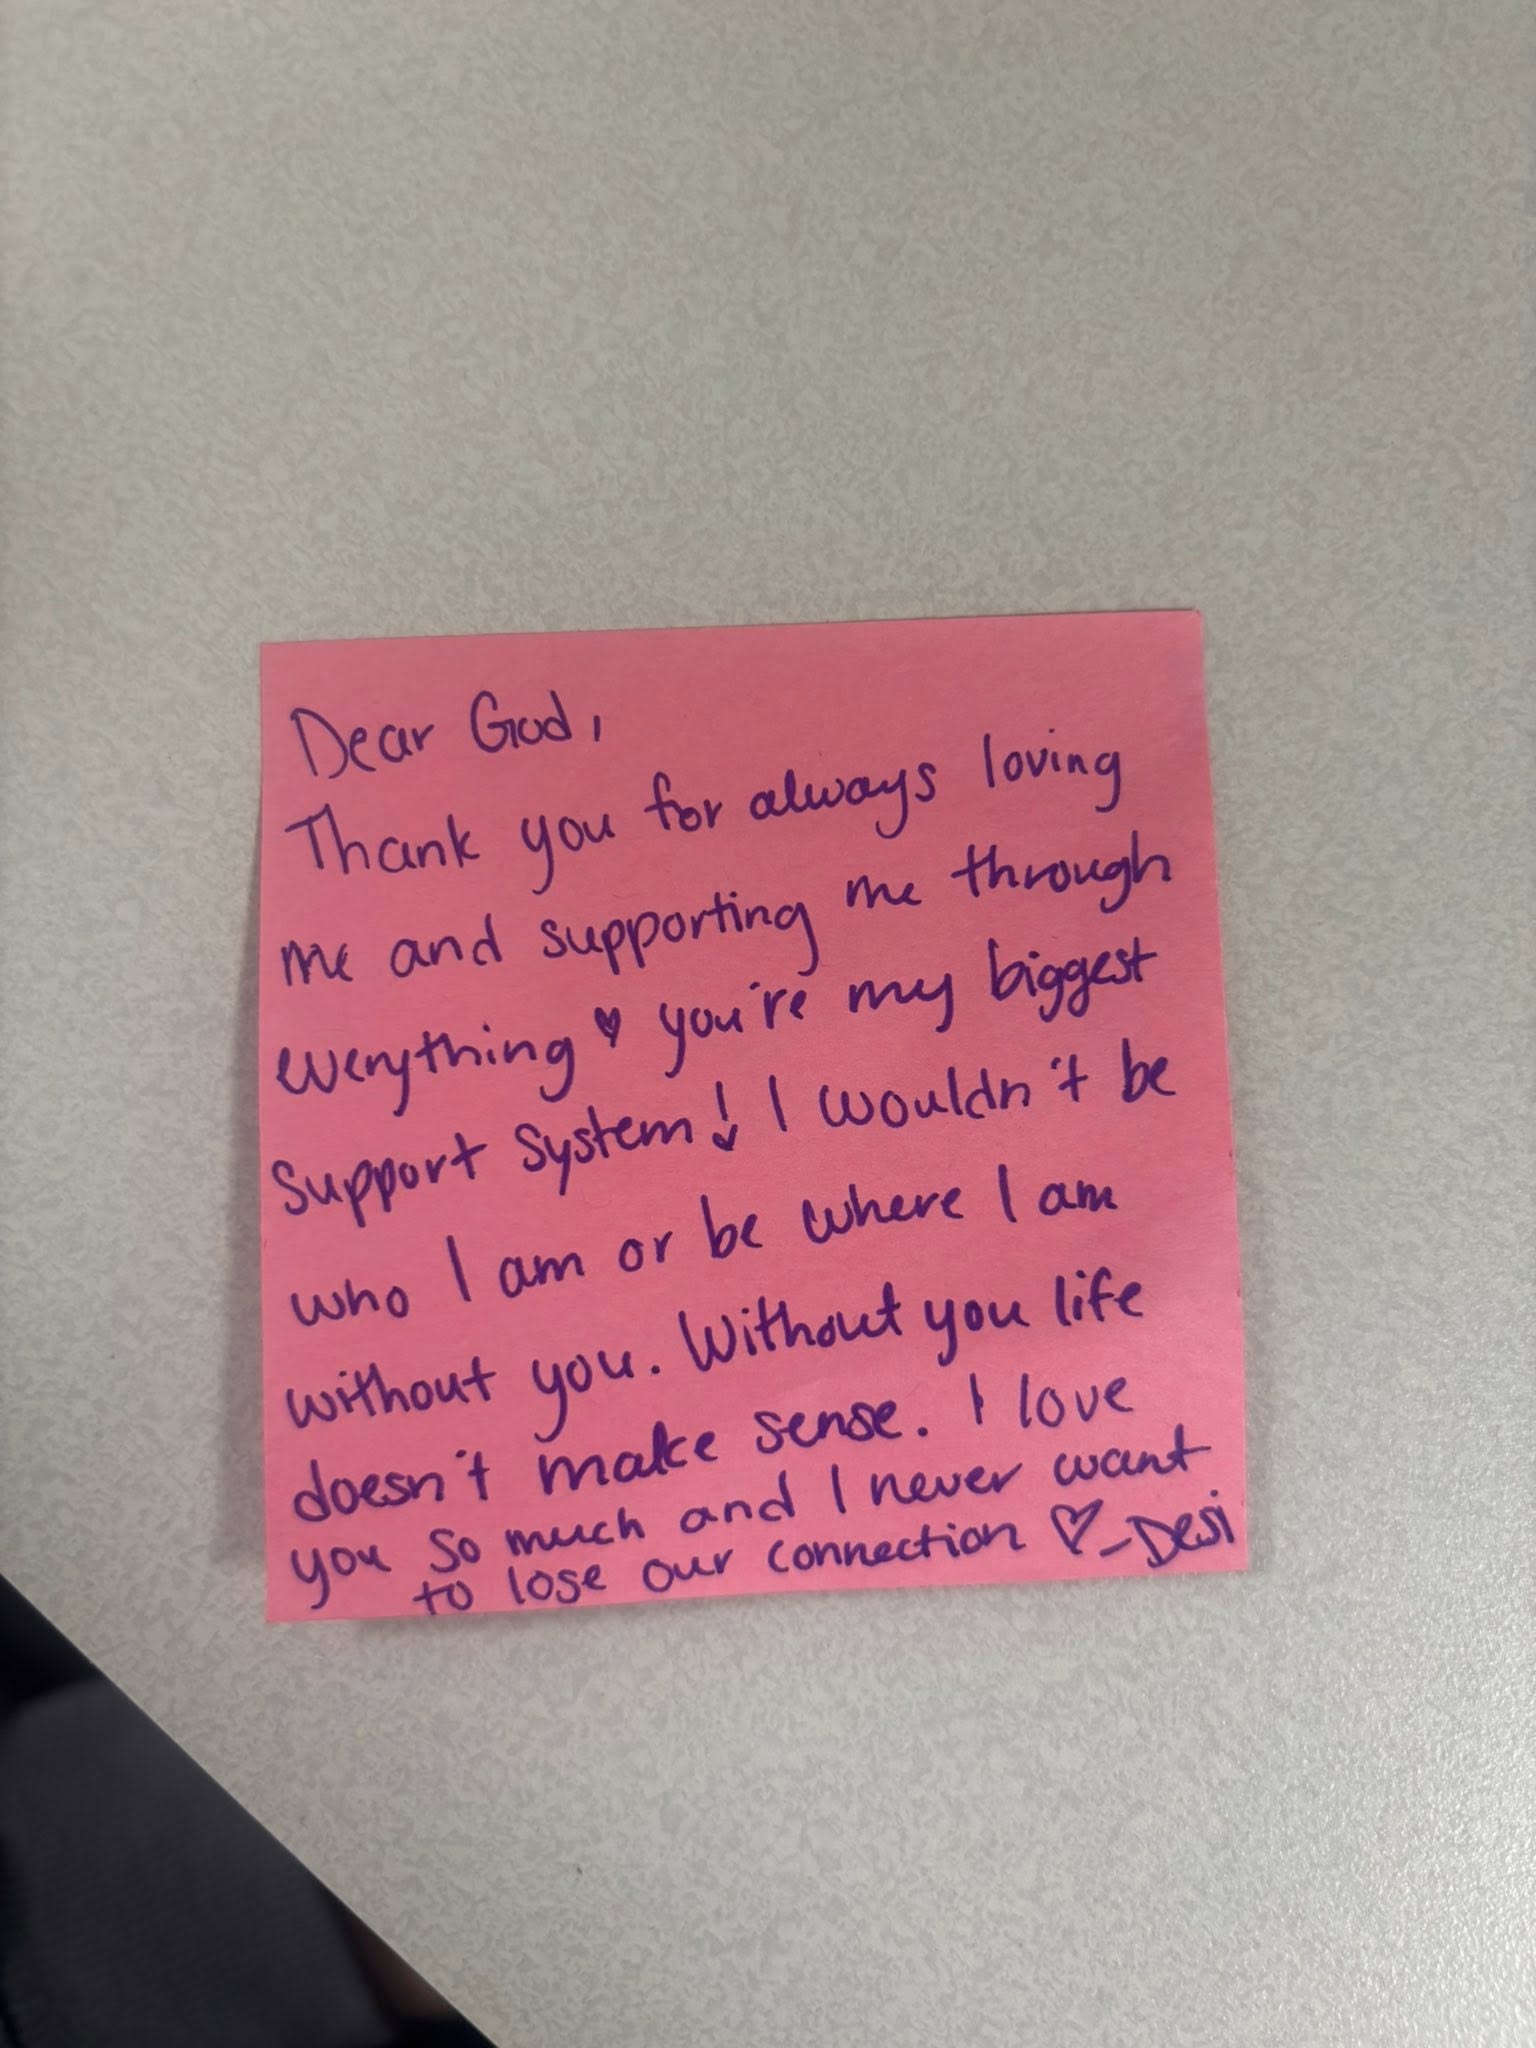 Dear God,
Thank you for always loving
me and supporting me through
everything ♥ you're my biggest
support system! I wouldn't be
who I am or be where I am
without you. Without you life
doesn't make sense. I love
you so much and I never want
to lose our connection ♡ -Desi